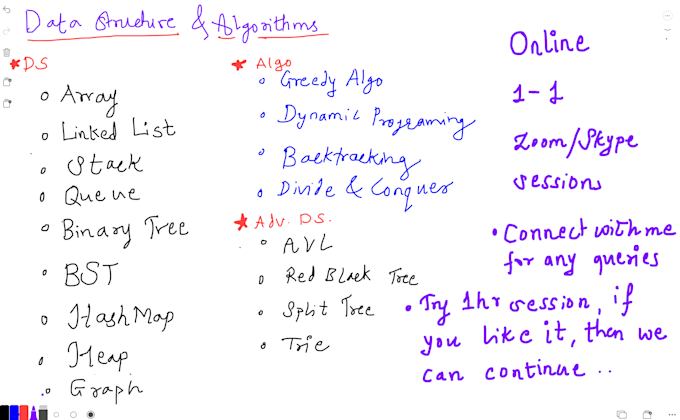 Data Structure & Algorithms
* DS
Array
Linked List
Stack
Queue
Binary Tree
BST
HashMap
Heap
Graph
* Algo
Greedy Algo
Dynamic Programing
Backtracking
Divide & Conquer
* Adv. DS.
AVL
Red Black Tree
Split Tree
Trie
Online
1-1
Zoom/Skype
sessions
• Connect with me
for any queries
• Try 1hr session, if
you like it, then we
can continue ..